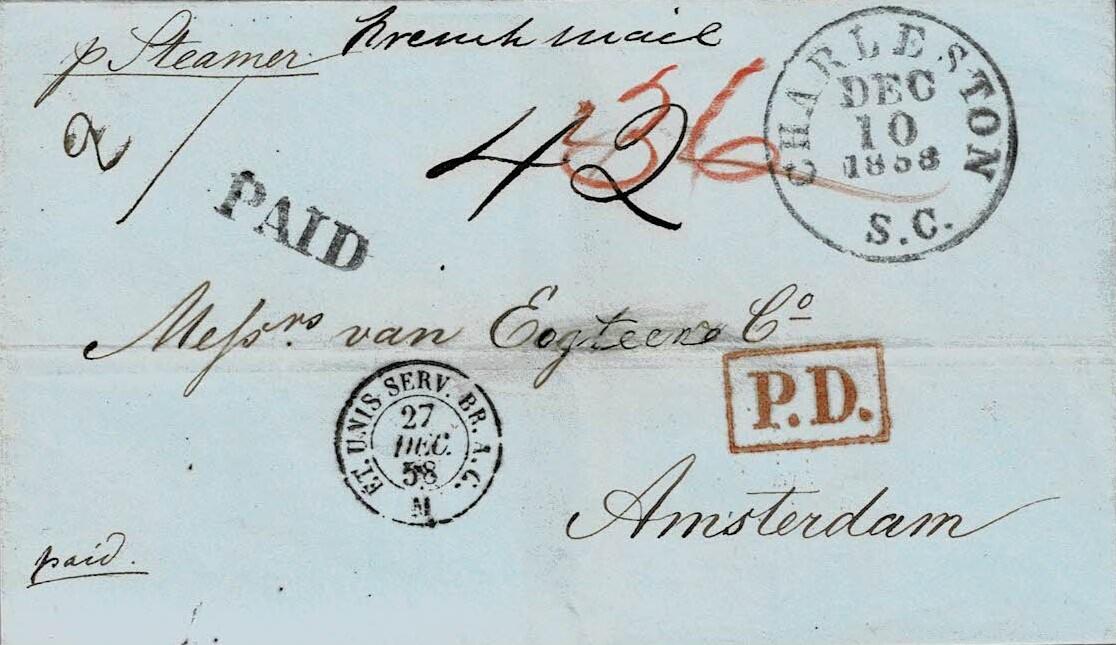 p Steamer French mail
2/
42
36
CHARLESTON
DEC
10
1858
S.C.
PAID
Messrs van Eogteene Co
ET. UNIS SERV. BR. A.C.
27
DEC.
58
M
P.D.
Amsterdam
paid.